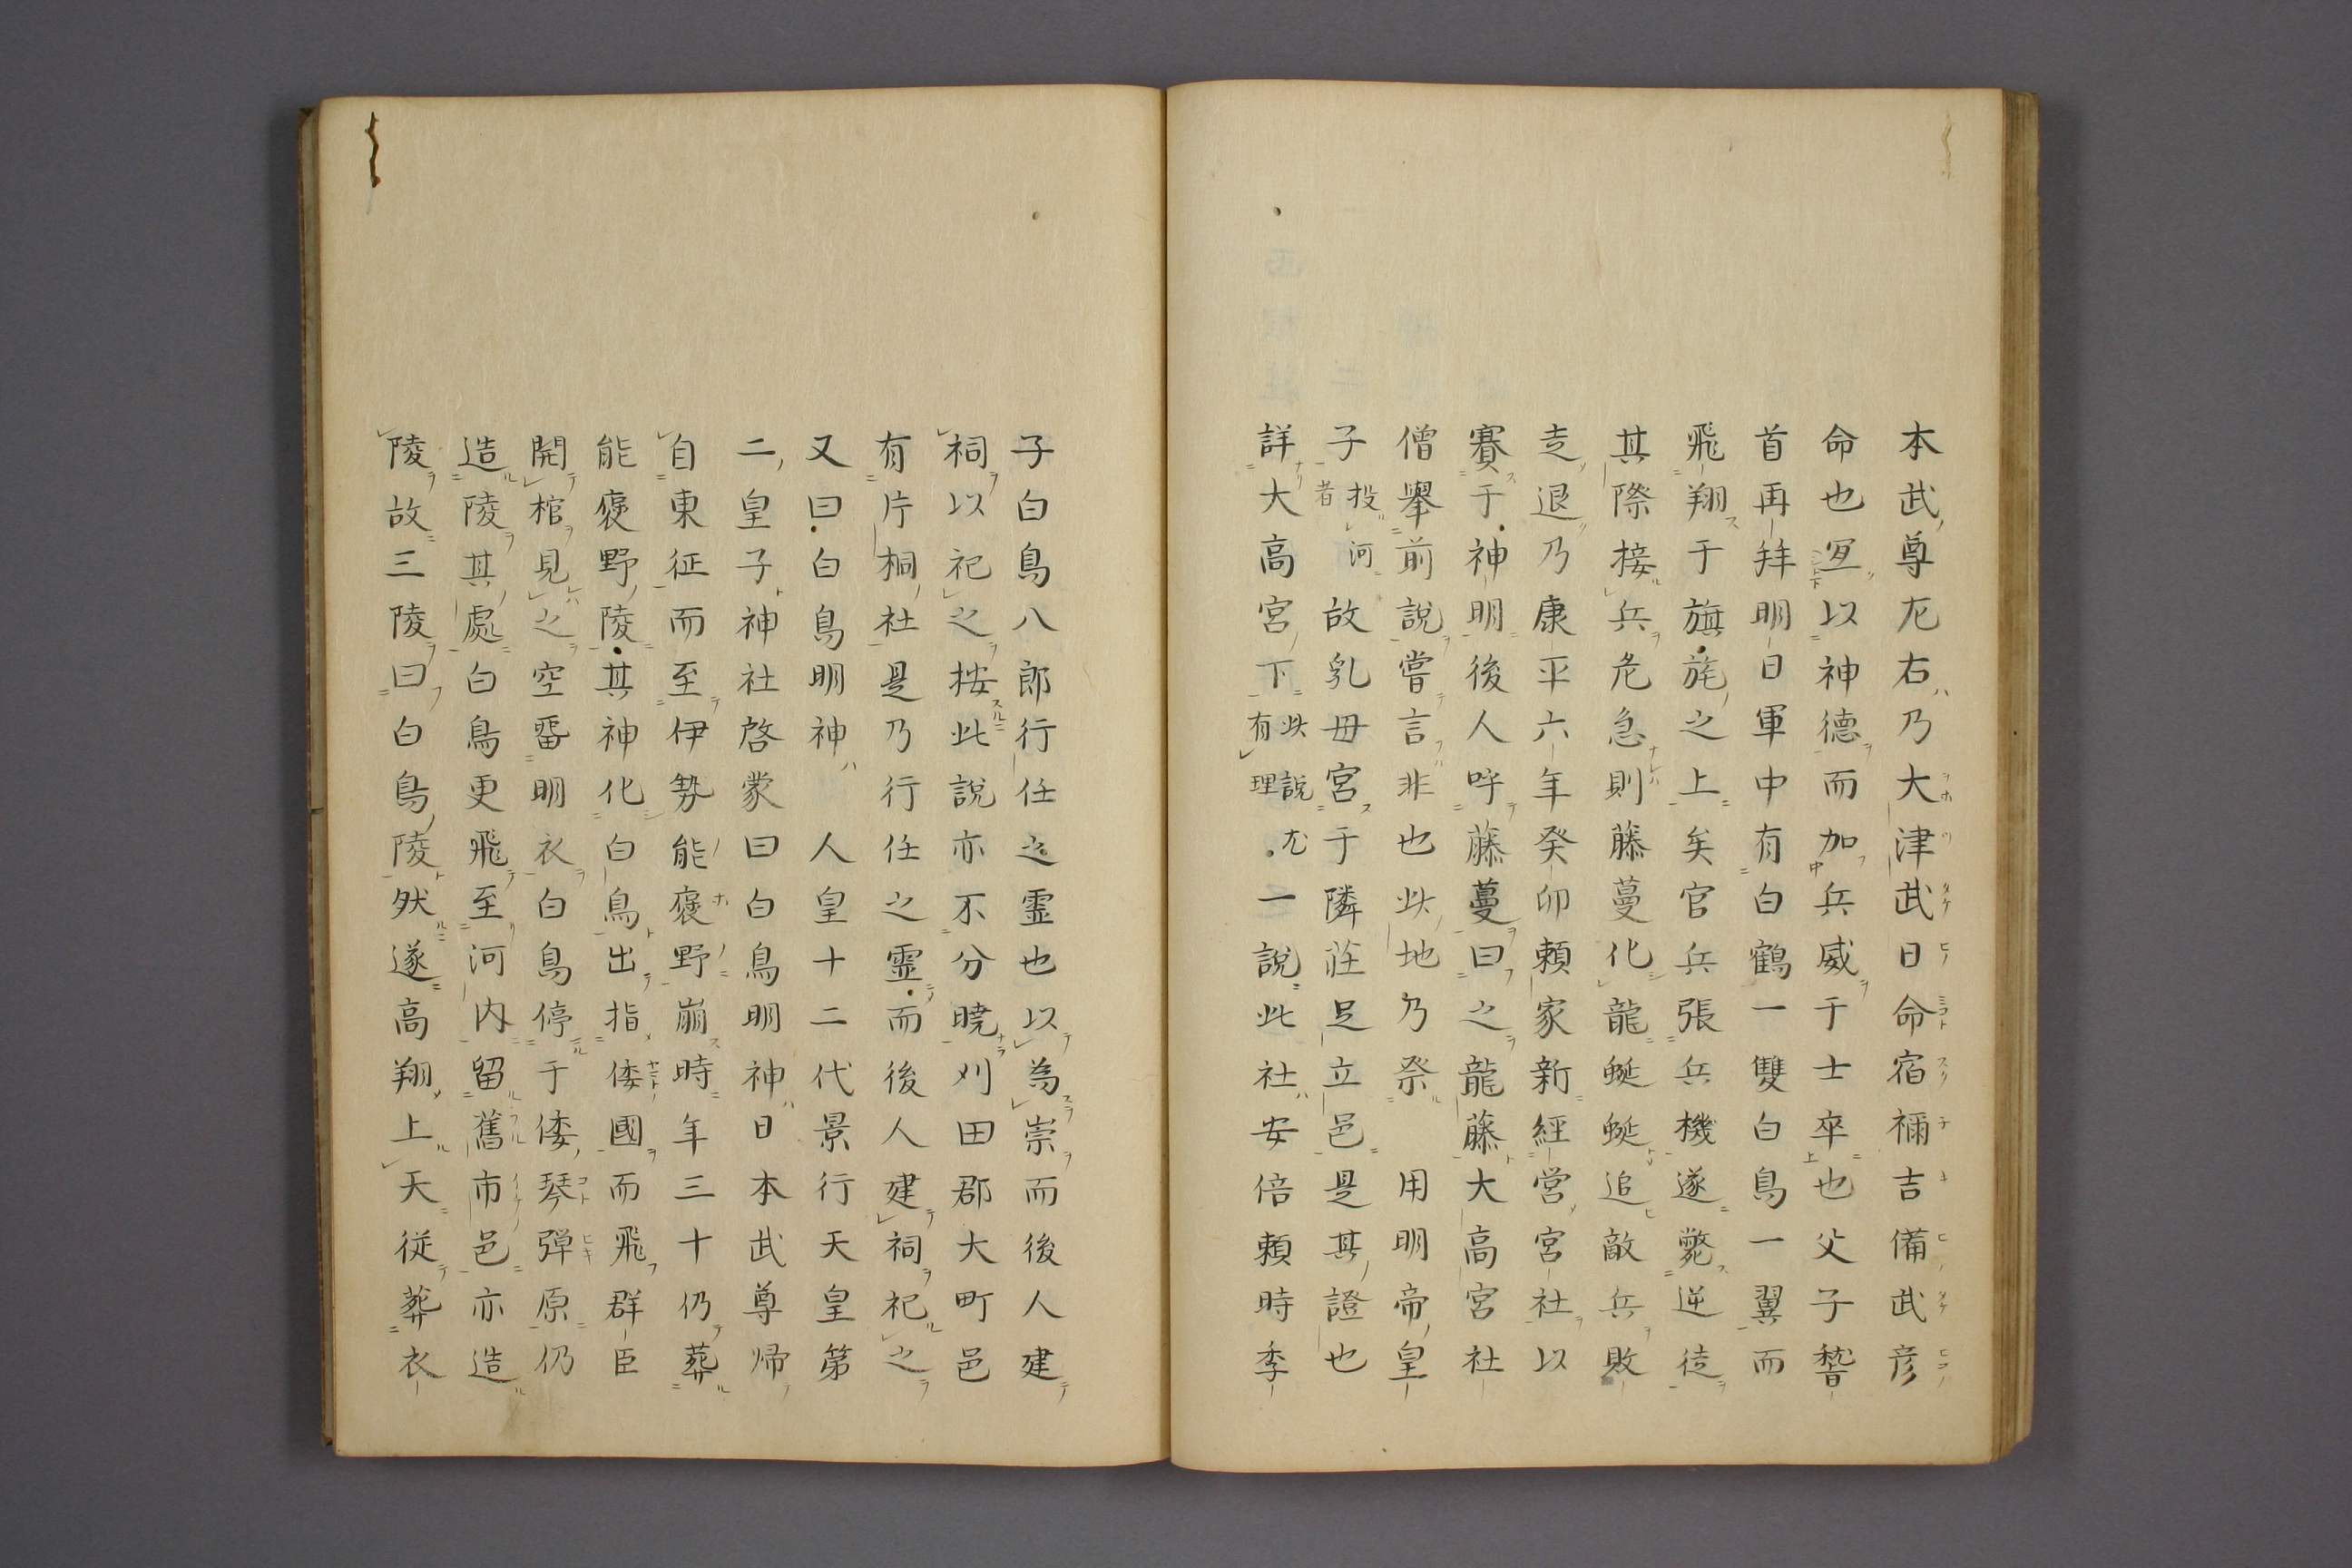 本武尊左右乃大津武日命宿禰吉備武彦
命也宜以神德而加兵威于士卒也父子稽
首再拜明日軍中有白鶴一雙白鳥一翼而
飛翔于旗旄之上矣官兵張兵機遂斃逆徒
其際接兵危急則藤蔓化龍蜿蜒追敵兵敗
走退乃康平六年癸卯賴家新經営宮社以
賽于神明後人呼藤蔓曰之龍藤大高宮社
僧舉前說嘗言非也此地乃祭用明帝皇
子投河者故乳母宮于隣莊足立邑是其證也
詳大高宮下此說尤有理一說此社安倍頼時季
子白鳥八郎行任之霊也以為崇而後人建
祠以祀之按此說亦不分曉刈田郡大町邑
有片桐社是乃行任之霊而後人建祠祀之
又曰白鳥明神人皇十二代景行天皇第
二皇子神社啓蒙曰白鳥明神日本武尊帰
自東征而至伊勢能褒野崩時年三十仍葬
能褒野陵其神化白鳥出指倭國而飛群臣
開棺見之空畱明衣白鳥停于倭琴弾原仍
造陵其處白鳥更飛至河内留舊市邑亦造
陵故三陵曰白鳥陵然遂高翔上天従葬衣